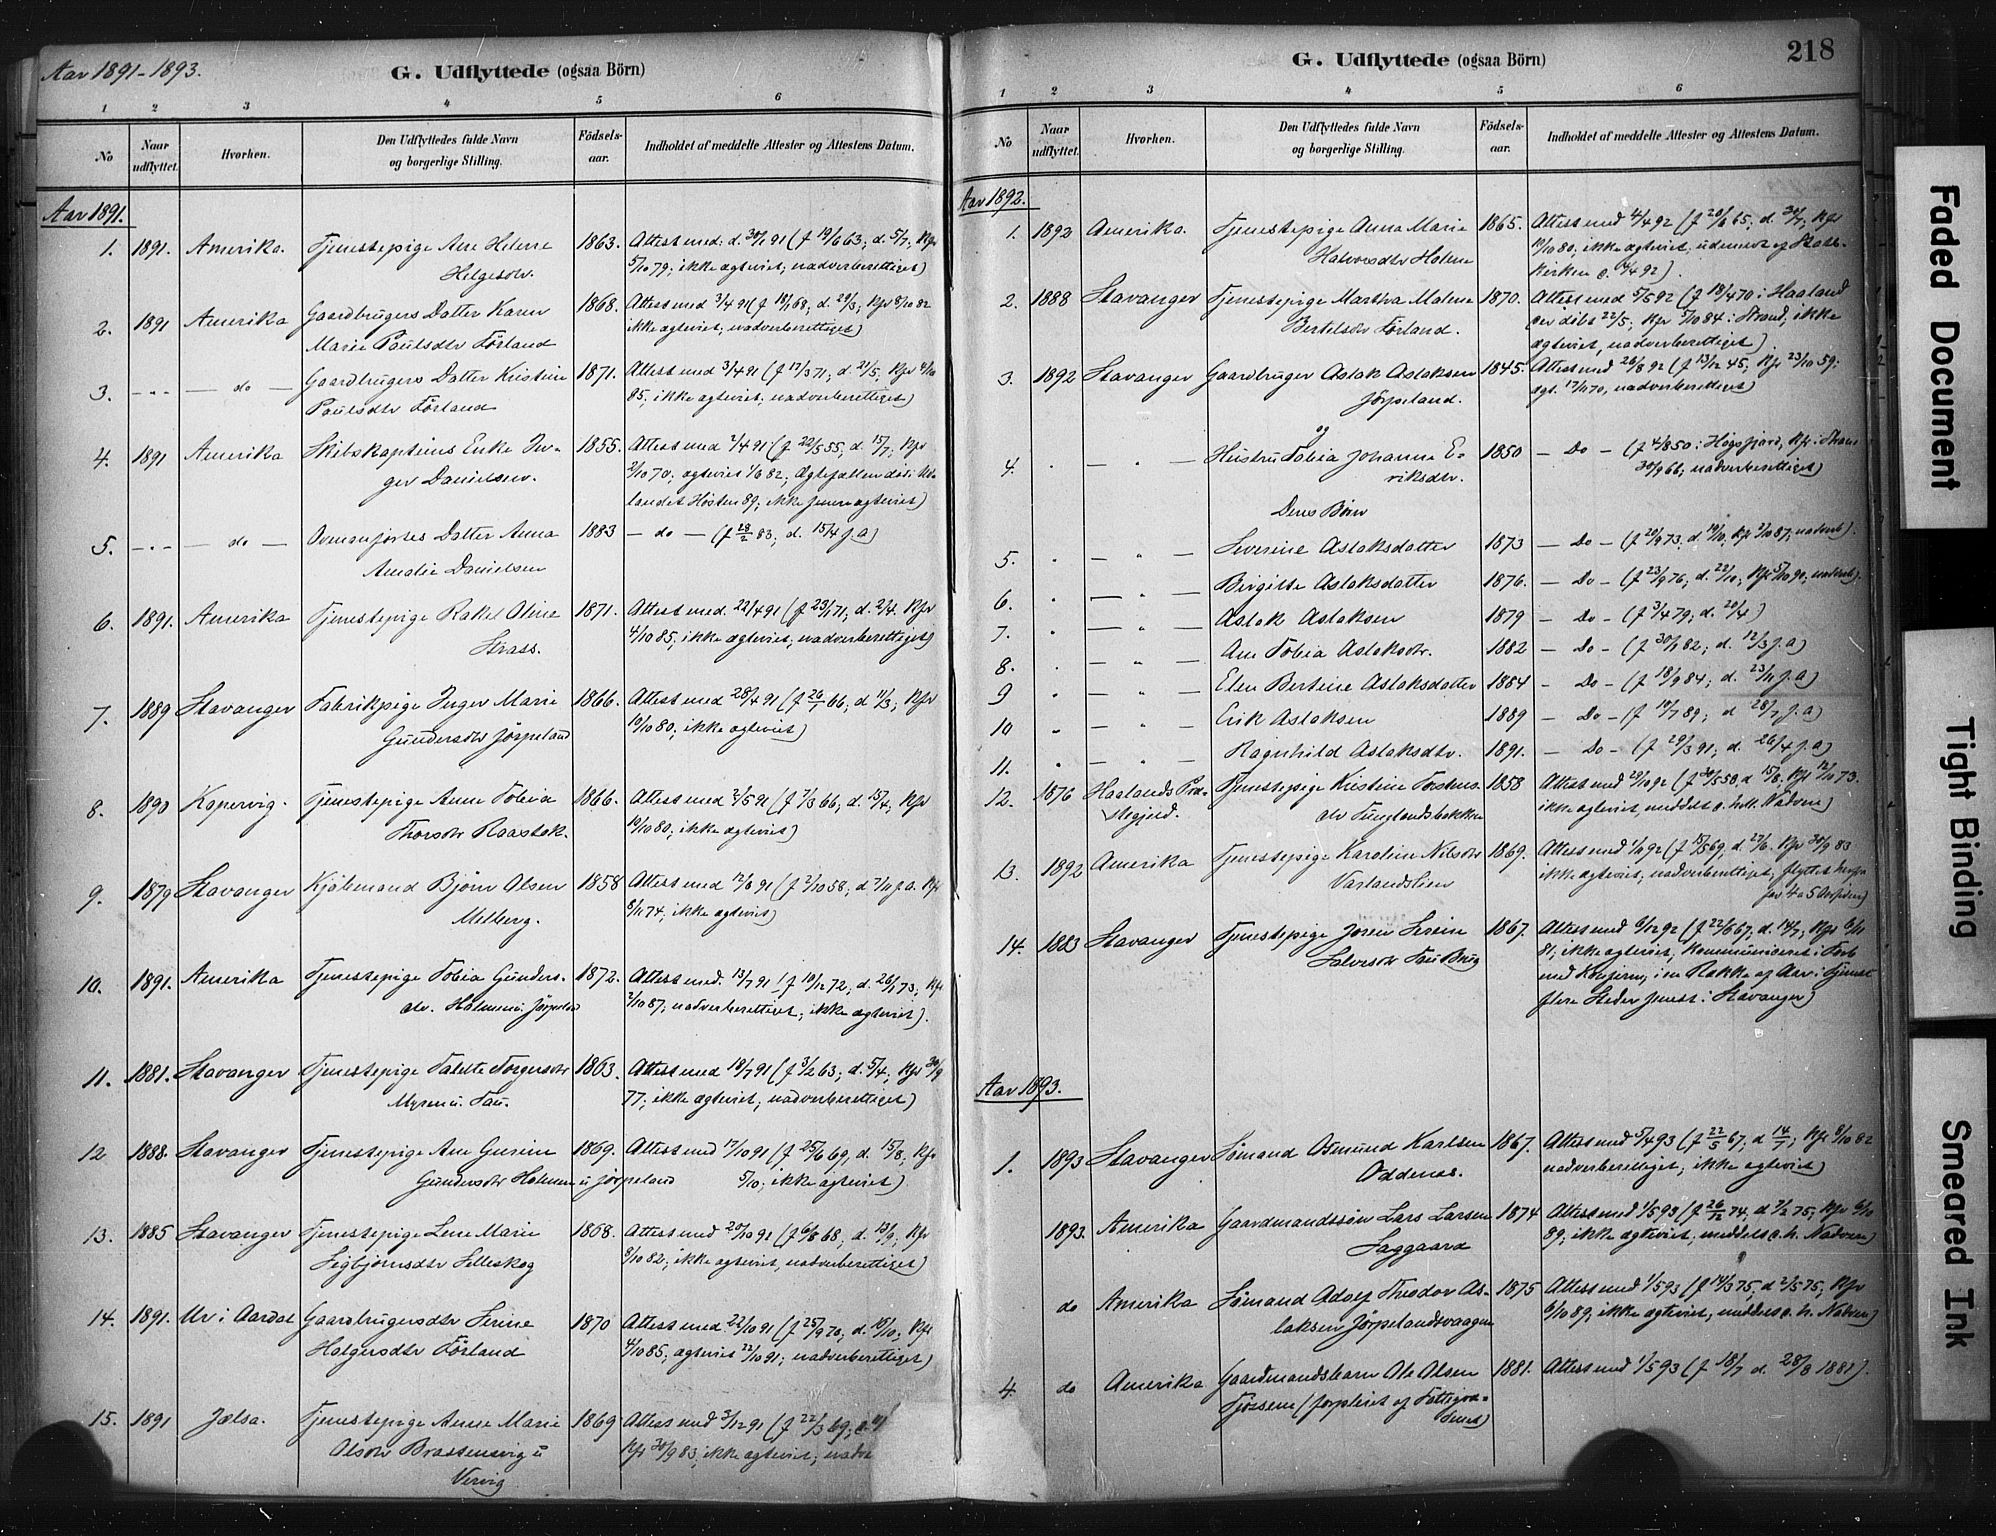 Aar 1891-1893.
G. Udflyttede (ogsaa Börn)
1 2 3 4 5 6
No
Naar udflyttet.
Hvorhen.
Den Udflyttedes fulde Navn og borgerlige Stilling.
Födsels-aar.
Indholdet af meddelte Attester og Attestens Datum.
Aar 1891.
1. 1891. Amerika. Tjenestepige Ane Helene 1863. Attest med. d. 30/1 91 (f 19/6 63; d. 5/7; Kfr
Helgesdtr. 5/10 79; ikke ægteviet; nadverberettiget)
2. 1891 Amerika Gaardbrugers Datter Karen 1868. Attest med 3/4 91 (f 18/1 68; d. 29/3; Kfr 8/10 82
Marie Paulsdtr Förland ikke ægteviet; nadverberettiget)
3. -"- — do — Gaardbrugers Datter Kristine 1871. Attest med 3/4 91 (f 17/3 71; d. 21/5; Kfr 4/10
Paulsdtr Förland 85, ikke ægteviet, nadverberettiget)
4. 1891 Amerika Skibskaptains Enke In- 1855. Attest med 2/4 91 (f 22/5 55, d. 15/7; Kfr
ger Danielsen. 2/10 70, ægteviet 1/8 82; Ægtefællen död i Ud-
landet Hösten 89; ikke senere ægteviet)
5. -"- — do — Datter Anna 1883 — do — (f 28/2 83; d. 15/4 s. a)
Amalie Danielsen
6. 1891. Amerika Tjenestepige Rakel Oline 1871. Attest med. 22/4 91 (f 23/1 71; d. 2/4. Kfr
Strass. 4/10 85, ikke ægteviet, nadverberettiget)
7. 1889 Stavanger Fabrikpige Inger Marie 1866. Attest med 28/4 91 (f 26/1 66, d 11/3; Kfr
Gundersdtr Jörpeland 10/10 80; ikke ægteviet)
8. 1890 Kopervig. Tjenestepige Anne Tobia 1866. Attest med 2/5 91 (f 7/3 66; d. 15/4, Kfr
Thorsdtr Raastak. 10/10 80; ikke ægteviet)
9. 1879 Stavanger Kjöbmand Björn Olsen 1858 Attest med 12/6 91 (f 2/10 58; d 7/11 s.a. Kfr
Melberg. 8/11 74; ikke ægteviet)
10. 1891. Amerika Tjenestepige Tobia Gunders- 1872. Attest med. 13/7 91 (f 19/12 72, d. 26/1 73, Kfr
dtr. Holmen u. Jörpeland 2/10 87; nadverberettiget, ikke ægteviet).
11. 1881. Stavanger Tjenestepige Talette Torgersdtr 1863. Attest med 18/7 91 (f 3/2 63; d. 5/4; Kfr 30/9
Myren u. Tau. 77; ikke ægteviet; nadverberettiget)
12 1888. Stavanger Tjenestepige Ane Gurine 1869. Attest med 17/10 91 (f 25/6 69, d. 15/8; Kfr
Gundersdtr Holmen u Jörpeland 5/10; ikke ægteviet)
13. 1885 Stavanger Tjenestepige Lene Marie 1868. Attest med 20/10 91 (f 6/8 68, d. 13/9; Kfr
Sigbjörnsdtr Lilleskog 8/10 82; ikke ægteviet, nadverberettiget)
14. 1891. Ur i Aardal Gaardbrugersdtr Serine 1870 Attest med 22/10 91 (f 25/9 70, d. 15/10; Kfr
Holgersdtr Förland 4/10 85; ægteviet 22/10 91; nadverberettiget)
15. 1891 Jælsa. Tjenestepige Anne Marie 1869 Attest med 3/12 91 (f 22/3 69;
Olsdtr Brattensvig u Kfr 30/9 83, ikke ægteviet; nadve
Vervig
218
G. Udflyttede (ogsaa Börn)
1 2 3 4 5 6
No
Naar udflyttet.
Hvorhen.
Den Udflyttedes fulde Navn og borgerlige Stilling.
Födsels-aar.
Indholdet af meddelte Attester og Attestens Datum.
Aar 1892.
1. 1892 Amerika. Tjenestepige Anna Marie 1865. Attest med 4/4 92 (f 20/6 65, d. 30/7, Kfr
Halvorsdtr Holene 10/10 80; ikke ægteviet, udmeldt af Stats-
kirken d. 14/4 92).
2. 1888 Stavanger Tjenestepige Martha Malene 1870. Attest med 5/5 92 (f 18/4 70 i Haaland
Bertelsdtr Förland. der döbt 22/5; Kfr 5/10 84 i Strand, ikke
ægteviet, nadverberettiget)
3. 1892 Stavanger Gaardbruger Aslak Aslaksen 1845. Attest med 26/8 92 (f 13/12 45; Kfr 23/10 59;
Jörpeland. ægt. 17/11 70, nadverberettiget)
og
4. " — " — Hustru Tobia Johanne E- 1850 — Do — (f 4/8 50 i Högsfjord, Kfr i Strand
riksdtr. 30/9 66; nadverberettiget)
Deres Börn
5. " — " — Severine Aslaksdatter 1873 — Do — (f 20/9 73, d 19/10; Kfr 2/10 87, nadverb).
6. " — " — Birgitte Aslaksdatter 1876. — Do — (f 23/9 76; d. 22/10; Kfr 5/10 90, nadverb).
7. " — " — Aslak Aslaksen 1879 — Do — (f 3/4 79; d. 20/4)
8. " — " — Ane Tobia Aslaksdtr. 1882 — Do — (f 30/1 82; d. 12/3 s. a)
9 " — " — Elen Bertine Aslaksdatter 1884 — Do — (f 18/9 84; d. 23/11 s. a)
10 " — " — Erik Aslaksen 1889 — Do — (f 10/7 89; d 28/7 s. a)
11. " — " — Ragnhild Aslaksdtr. 1891. — Do — (f 29/3 91; d. 26/4 s. a)
12. 1876 Haalands Præ- Tjenestepige Kristine Torstens- 1858 Attest med 29/10 92 (f 30/5 58, d 15/8. Kfr 12/10 73.
stegjeld. dtr Tunglandsbakken ikke ægteviet, meddelt d. hell. Nadvere)
13. 1892 Amerika Tjenestepige Karoline Nilsdtr 1869. Attest med 1/10 92 (f 15/5 69, d. 27/6. Kfr 30/9 83
Vaslandslien ikke ægteviet, nadverberettiget, flyttet herfra
for 4 a 5 Aar siden)
14. 1883 Stavanger Tjenestepige Joren Serine 1867. Attest med 6/12 92 (f 22/6 67, d. 14/7; Kfr 6/11
Salvesdtr Tau 81, ikke ægteviet, Kommuniceret i Forb
med Konfirm; i en Række af Aar i Tjeneste
flere Steder senest i Stavanger)
Aar 1893.
1. 1893 Stavanger Sömand Osmund Karlsen 1867. Attest med 5/4 93 (f 22/5 67; d 14/7; Kfr 8/10 82
Oddenæs. nadverberettiget; ikke ægteviet)
1893. Amerika Gaardmandssön Lars Larsen 1874 Attest med 1/5 93 (f 26/12 74, d 7/2 75; Kfr 6/10
Laggaard 89; ikke ægteviet; meddelt d. h. Nadvere)
do Amerika Sömand Adolf Theodor As- 1875 Attest med 1/5 93 (f 14/3 75, d 2/5 75; Kfr
laksen Jörpelandsvaagen 6/10 89; ikke ægteviet, meddelt d. h. Nadvere)
4. do Amerika Gaardmandsbarn Ole Olsen 1881. Attest med 1/5 93 (f 18/7 d. 28/8 1881).
Tjössene (forpleiet af Fattigvæ-
senet)
Faded Document
Tight Binding
Smeared Ink